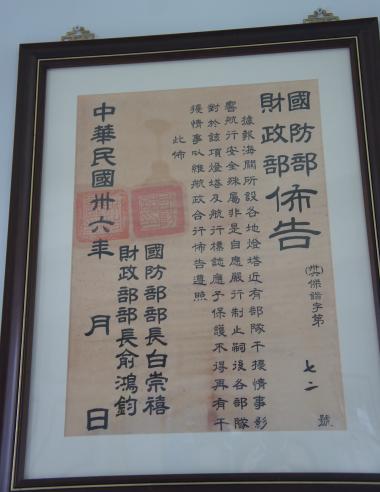 國防部
財政部
佈告
(卅六)傑諧字第 七二 號
據報海關所設各地燈塔近有部隊干擾情事影
響航行安全殊屬非是自應嚴行制止嗣後各部隊
對於該項燈塔及航行標誌應予保護不得再有干
擾情事以維航政合行佈告遵照
此佈
國防部部長白崇禧
財政部部長俞鴻鈞
中華民國卅六年 月 日